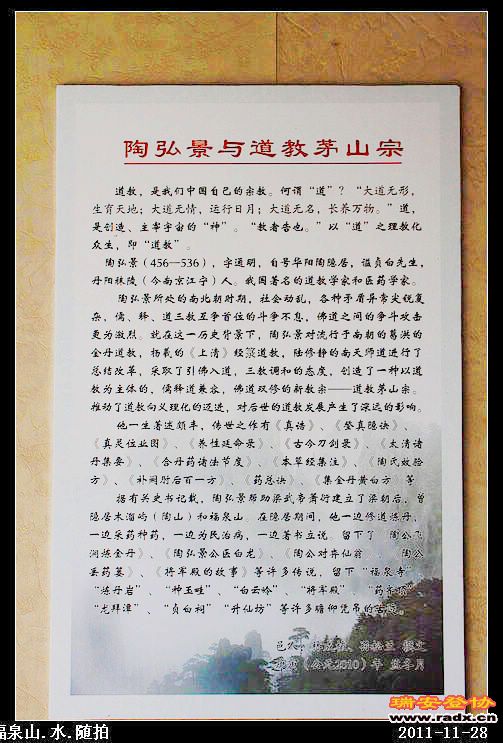 陶弘景与道教茅山宗
道教，是我们中国自己的宗教。何谓“道”？“大道无形，
生育天地；大道无情，运行日月；大道无名，长养万物。”道，
是创造、主宰宇宙的“神”。“教者告也。”以“道”之理教化
众生，即“道教”。
陶弘景（456—536），字通明，自号华阳陶隐居，谥贞白先生，
丹阳秣陵（今南京江宁）人。我国著名的道教学家和医药学家。
陶弘景所处的南北朝时期，社会动乱，各种矛盾异常尖锐复
杂，儒、释、道三教互争首位的斗争不息，佛道之间的争斗攻击
更为激烈。就在这一历史背景下，陶弘景对流行于南朝的葛洪的
金丹道教，杨羲的《上清》经箓道教，陆修静的南天师道进行了
总结改革，采取了引佛入道，三教调和的态度，创造了一种以道
教为主体的，儒释道兼容，佛道双修的新教宗——道教茅山宗。
推动了道教向义理化的迈进，对后世的道教发展产生了深远的影响。
他一生著述颇丰，传世之作有《真诰》、《登真隐诀》、
《真灵位业图》、《养性延命录》、《古今刀剑录》、《太清诸
丹集要》、《合丹药诸法节度》、《本草经集注》、《陶氏效验
方》、《补阙肘后百一方》、《药总诀》、《集金丹黄白方》等
据有关史书记载，陶弘景帮助梁武帝萧衍建立了梁朝后，曾
隐居木溜屿（陶山）和福泉山。在隐居期间，他一边修道炼丹，
一边采药种药，一边为民治病，一边著书立说。留下了《陶公飞
涧炼金丹》、《陶弘景公医白龙》、《陶公对弈仙翁》、《陶公
丢药篓》、《将军殿的故事》等许多传说，留下“福泉寺”、
“炼丹岩”、“种玉畦”、“白云岭”、“将军殿”、
“龙拜潭”、“贞白祠”“升仙坊”等许多瞻仰凭吊的古
撰文
（公元2010）年
瑞安登协
www.radx.cn
福泉山.水.随拍
2011-11-28